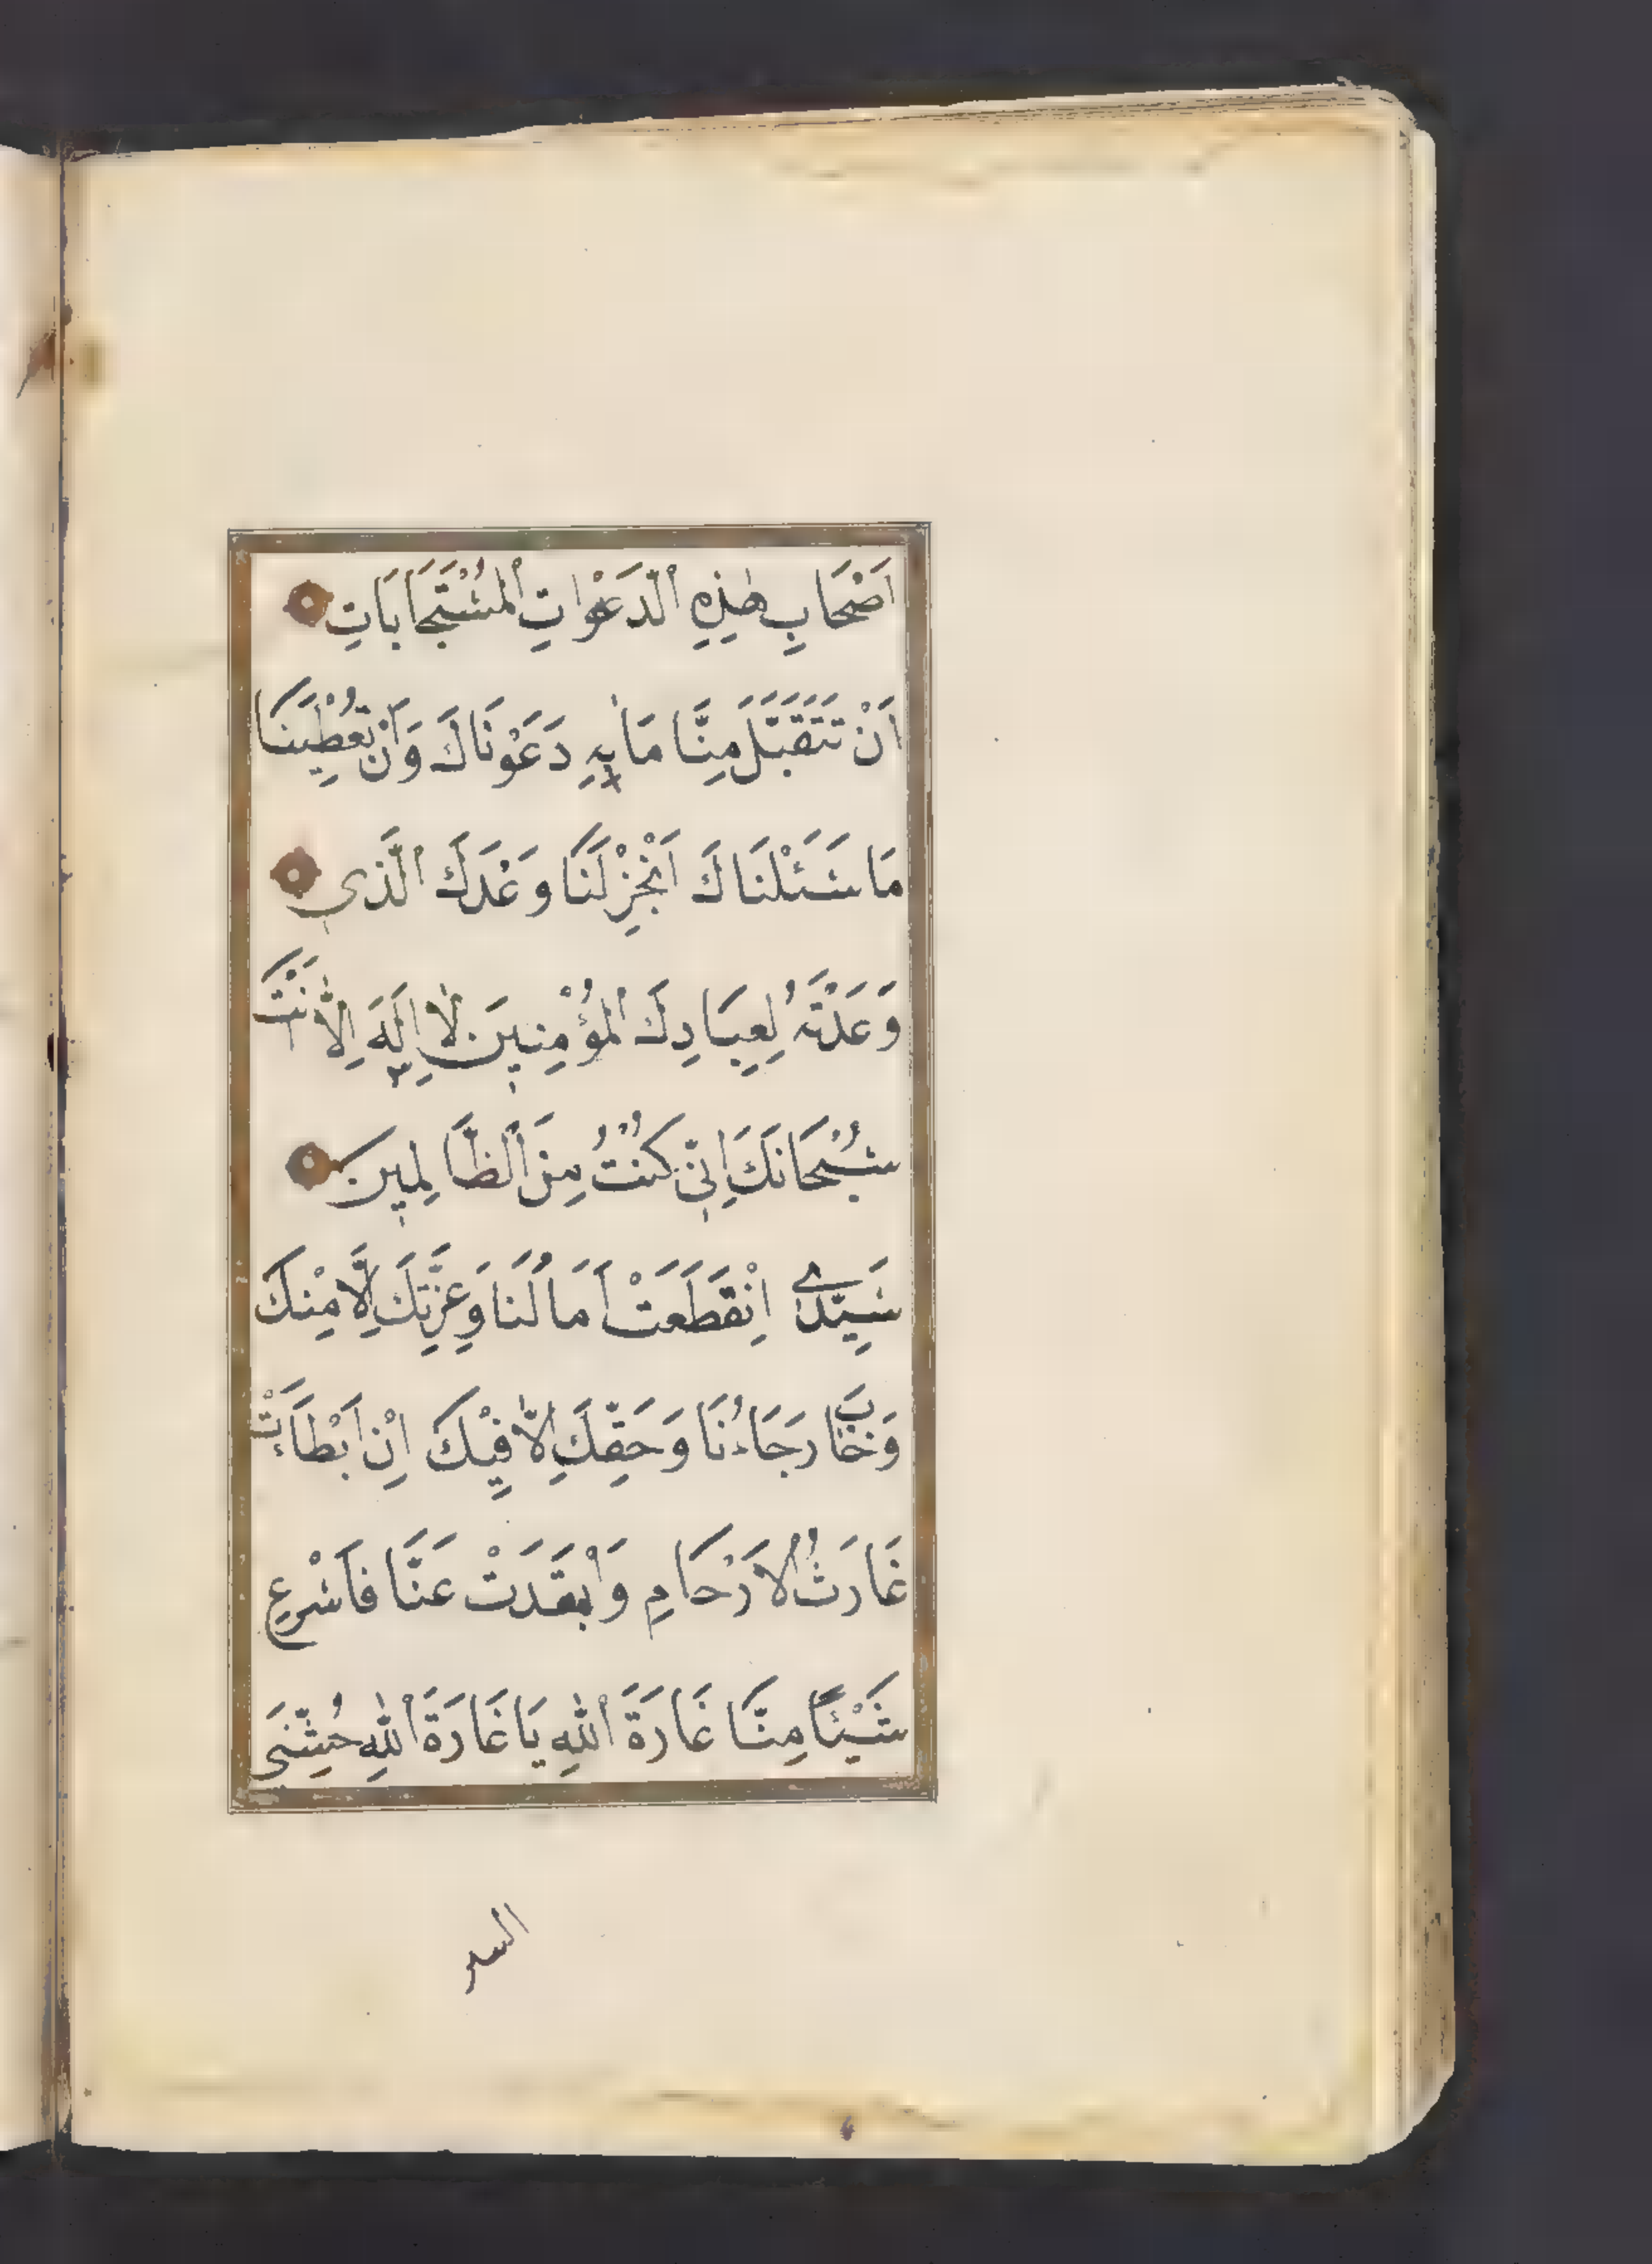 اَصْحَابِ هٰذِهِ الدَّعَوَاتِ الْمُسْتَجَابَاتِ
اَنْ تَتَقَبَّلَ مِنَّا مَا بِهٖ دَعَوْنَاكَ وَاَنْ تُعْطِيَنَا
مَا سَئَلْنَاكَ اَنْجِزْ لَنَا وَعْدَكَ الَّذٖى
وَعَدْتَهُ لِعِبَادِكَ الْمُؤْمِنٖينَ لَٓا اِلٰهَ اِلَّٓا اَنْتَ
سُبْحَانَكَ اِنّٖى كُنْتُ مِنَ الظَّالِمٖينَ
سَيِّدِى اِنْقَطَعَتْ اَمَالُنَا وَعِزَّتِكَ اِلَّا مِنْكَ
وَخَابَ رَجَاءُنَا وَحَقِّكَ اِلَّا فِيْكَ اِنْ اَبْطَاَتْ
غَارَتُ الْاَرْحَامِ وَابْعَدَتْ عَنَّا فَاَسْرِعِ
شَيْئًا مِنَّا غَارَةَ اللهِ يَا غَارَةَ اللهِ حُثِّنَى
السير